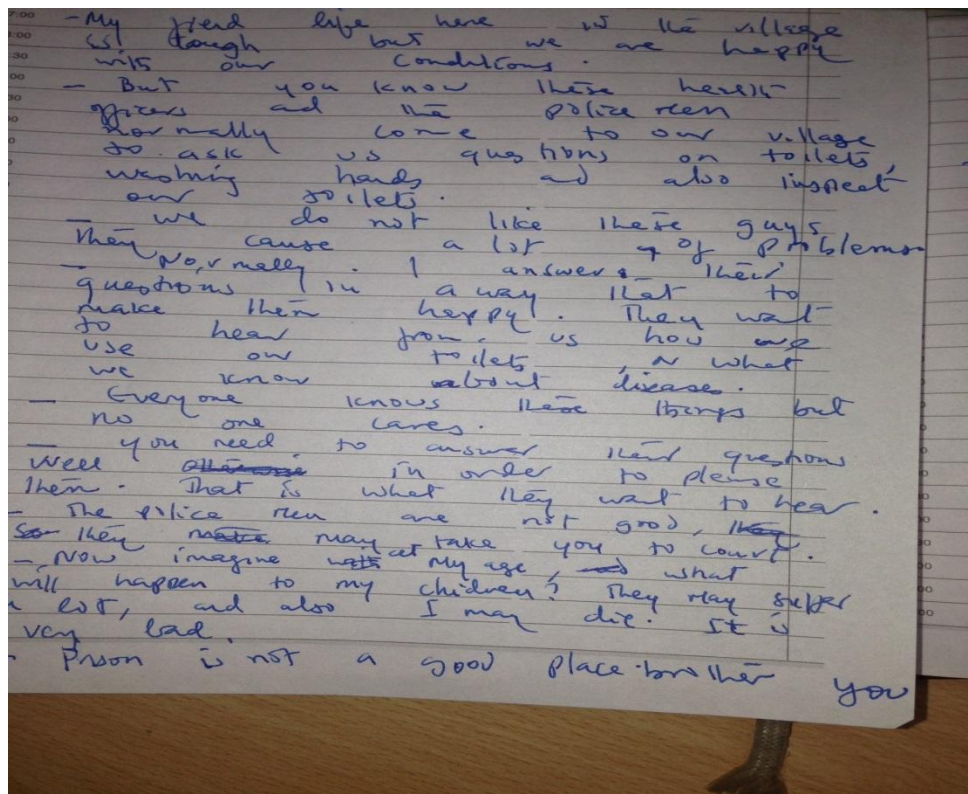 - My friend life here in the village
is tough but we are happy
with our conditions.
- But you know these health
officers and the police men
normally come to our village
to ask us questions on toilets,
washing hands and also inspect
our toilets.
- We do not like these guys
They cause a lot of problems
- Normally. I answer their
questions in a way that to
make them happy. They want
to hear from us how we
use our toilets, or what
we know about disease.
- Everyone knows these things but
no one cares.
- you need to answer their questions
well otherwise in order to please
them. That is what they want to hear.
- The police men are not good, they
So they make may take you to court.
- Now imagine at my age, and what
will happen to my children? They may suffer
a lot, and also I may die. It is
very bad.
- Prison is not a good place brother you